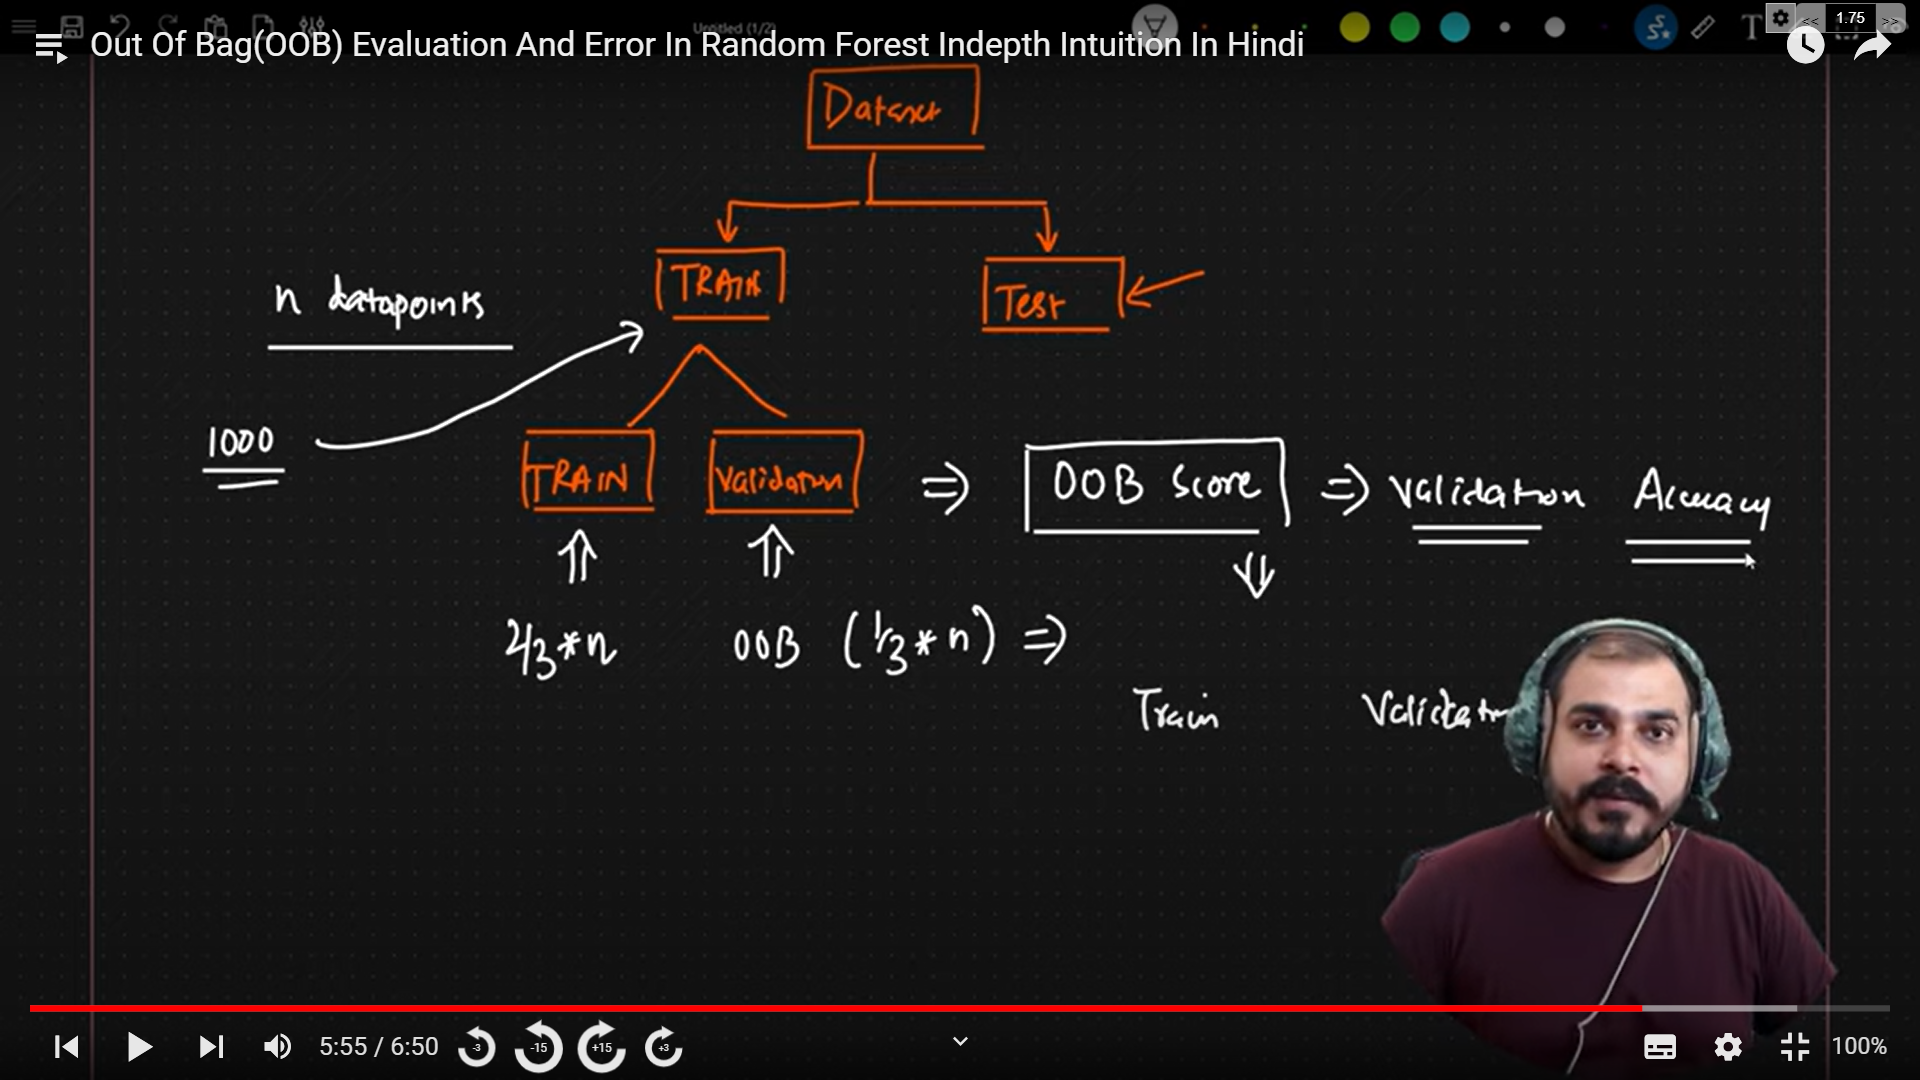 Untitled (1/2)
<< 1.75 >>
Out Of Bag(OOB) Evaluation And Error In Random Forest Indepth Intuition In Hindi
Dataset
TRAIN
Test
n datapoints
1000
TRAIN
Validation
⇒ OOB Score ⇒ Validation Accuracy
2/3*n
OOB (1/3*n) ⇒
Train
Validation
5:55 / 6:50
-3
-15
+15
+3
100%